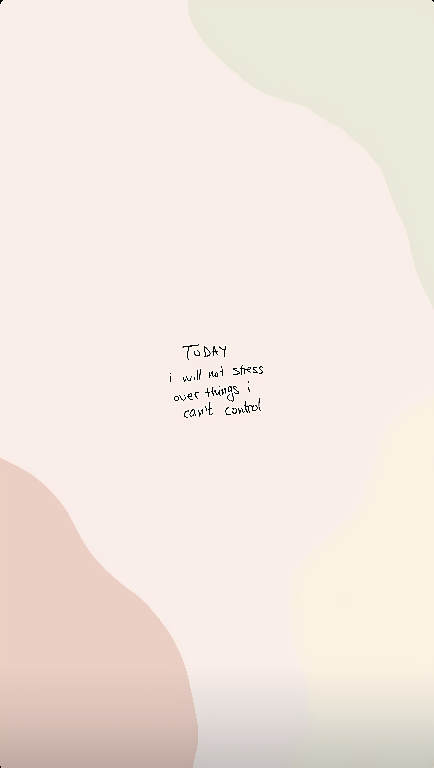 TODAY
i will not stress
over things i
can't control